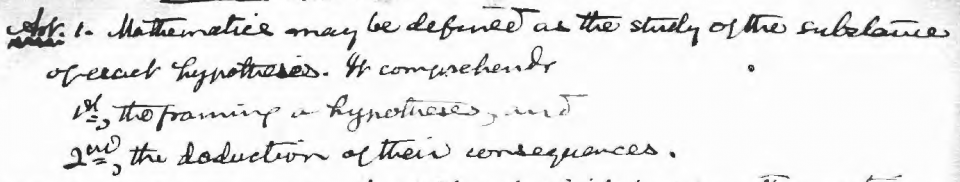 Art. 1. Mathematics may be defined as the study of the substance
of exact hypotheses. It comprehends
1st, the framing of hypotheses, and
2nd, the deduction of their consequences.